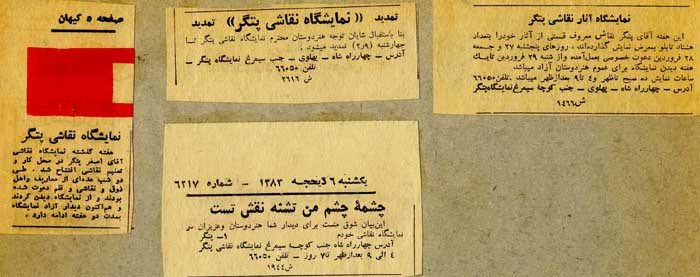 صفحه ۵ کیهان
نمایشگاه نقاشی پتگر
هفته گذشته نمایشگاه نقاشی
آقای اصغر پتگر در محل کار و
تعلیم نقاشی افتتاح شد . طی
دو شب عده‌ای از معاریف واهل
ذوق و نقاشی و قلم دعوت شده
بودند و از نمایشگاه دیدن کردند
و هم‌اکنون دیدار آزاد نمایشگاه
بمدت دو هفته ادامه دارد .
تمدید «(نمایشگاه نقاشی پتگر)» تمدید
بنا باستقبال شایان توجه هنردوستان محترم نمایشگاه نقاشی پتگر تا
چهارشنبه (۲ر۹) تمدید میشود .
آدرس – چهارراه شاه – پهلوی – جنب سیمرغ نمایشگاه پتگر –
تلفن ۶۶۰۵۰
ش ۲۶۱۶
نمایشگاه آثار نقاشی پتگر
این هفته آقای پتگر نقاش معروف قسمتی از آثار خودرا بتعداد
هشتاد تابلو بمعرض نمایش گذارده‌اند ، روزهای پنجشنبه ۲۷ و جمعه
۲۸ فروردین دعوت خصوصی بعمل‌آمده واز شنبه ۲۹ فروردین تایك
هفته دیدن نمایشگاه برای عموم هنردوستان آزاد میباشد.
ساعات نمایش ده صبح تاظهر و۴ تا ۹ بعدازظهر میباشد .تلفن۶۶۰۵۰
آدرس – چهارراه شاه – پهلوی – جنب کوچه سیمرغ‌نمایشگاه‌پتگر
ش۱۴۶۶
یکشنبه ۶ ذیحجه ۱۳۸۳ – شماره ۶۲۱۷
چشمهٔ چشم من تشنه نقش تست
این‌بیان شوق منست برای دیدار شما هنردوستان وعزیزان سر
نمایشگاه نقاشی خودم ۱– پتگر
آدرس چهارراه شاه جنب کوچه سیمرغ نمایشگاه نقاشی پتگر
۴ الی ۹ بعدازظهر تا ۷ روز – تلفن ۶۶۰۵۰
ش۱۹۴۴